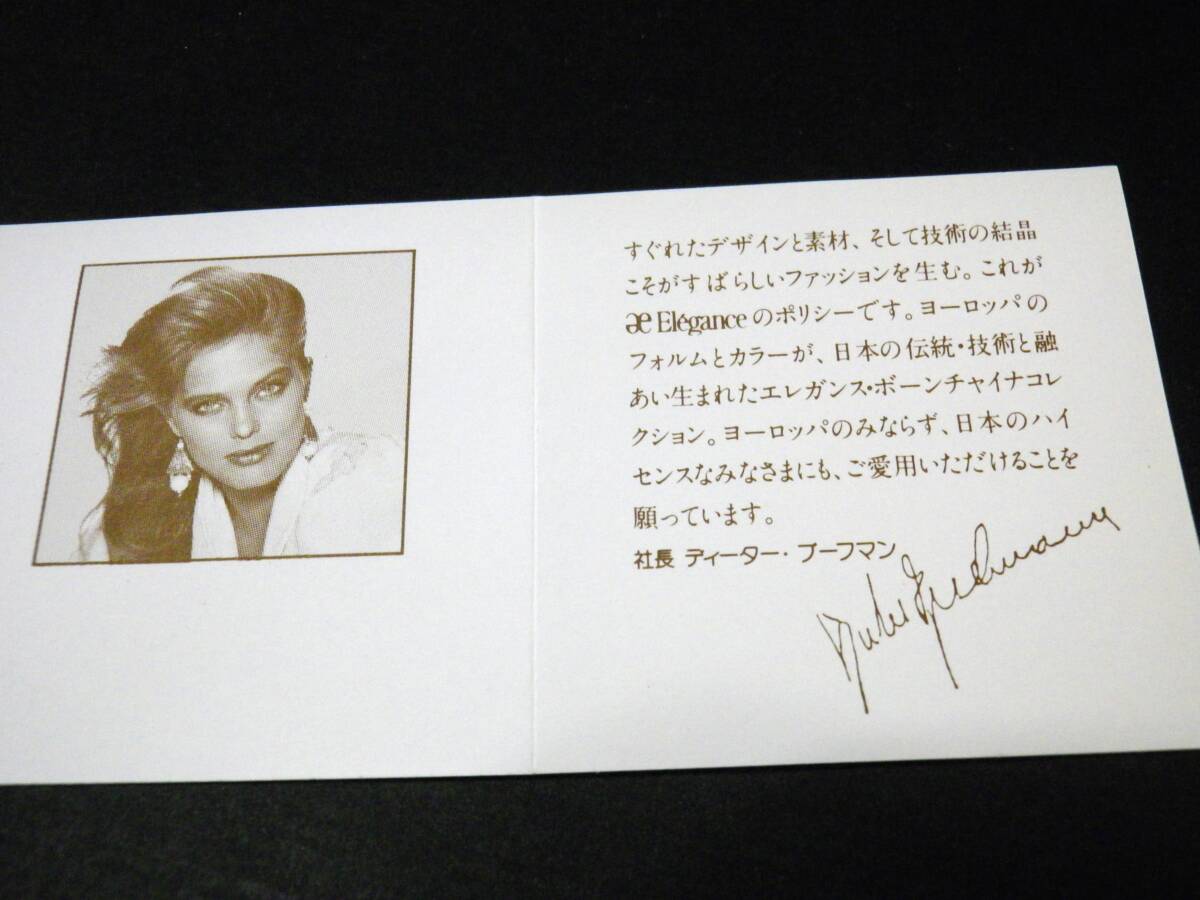 すぐれたデザインと素材、そして技術の結晶
こそがすばらしいファッションを生む。これが
æ Elégance のポリシーです。ヨーロッパの
フォルムとカラーが、日本の伝統・技術と融
あい生まれたエレガンス・ボーンチャイナコレ
クション。ヨーロッパのみならず、日本のハイ
センスなみなさまにも、ご愛用いただけることを
願っています。
社長 ディーター・ブーフマン